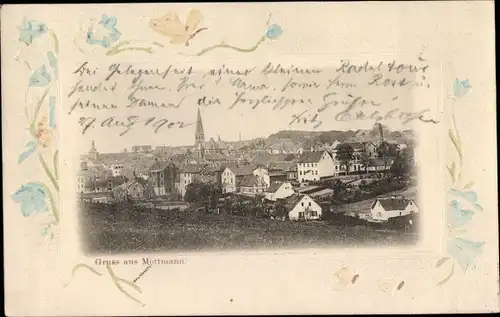 Bei Gelegenheit einer kleinen Radeltour
sendet Ihnen, Ihrer Frau, sowie
seinen Damen die herzlichsten Grüsse
27 Aug 1902 Fritz
Gruss aus Mettmann.